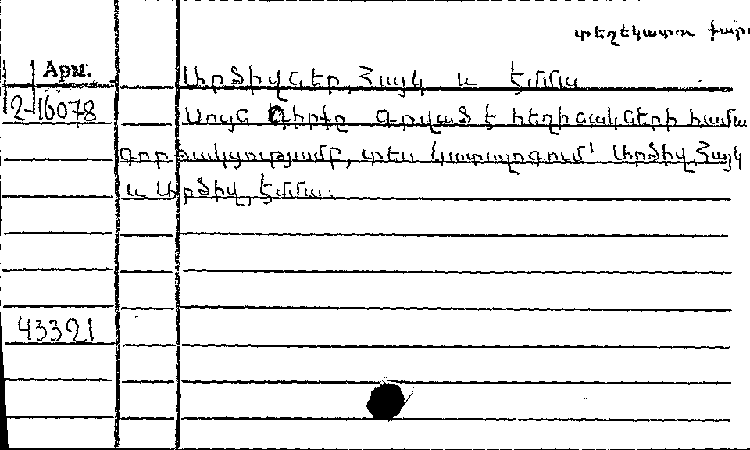 տեղեկատու քարտ
Арм. Արծիվներ, Հայկ և Էմմա
2-16078 Սույն գիրքը գրված է հեղինակների համա
գործակցությամբ, տես կատալոգում՝ Արծիվ, Հայկ
և Արծիվ, Էմմա.
43321